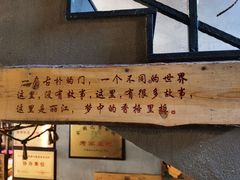 一扇古朴的门，一个不同的世界
这里，没有故事，这里，有很多故事，
这里是丽江，梦中的香格里拉。